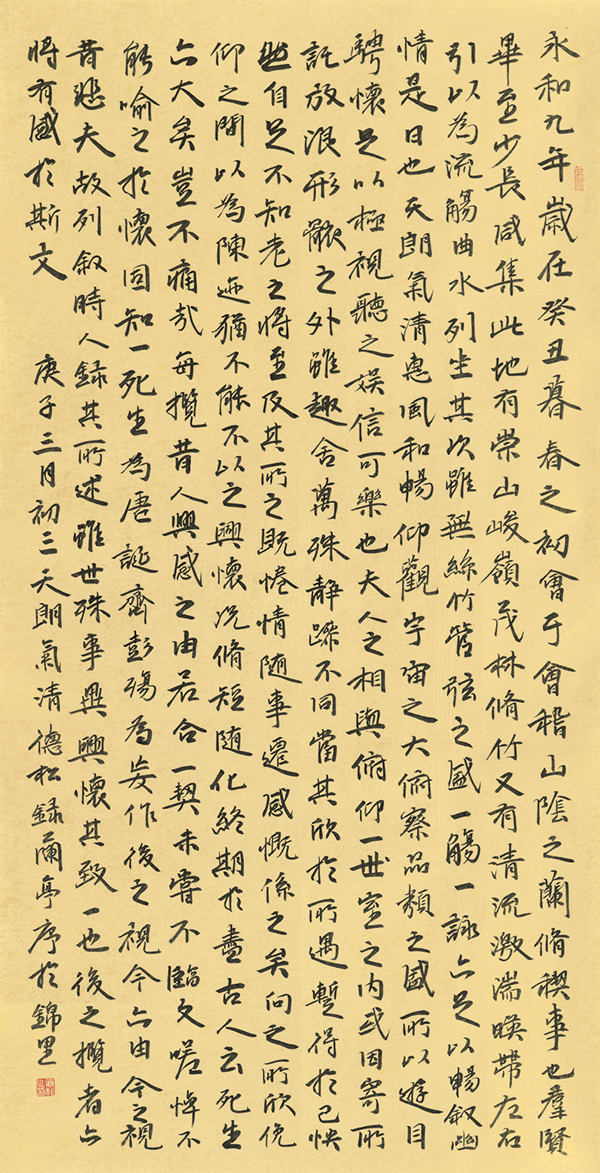 永和九年歲在癸丑暮春之初會于會稽山陰之蘭脩稧事也羣賢
畢至少長咸集此地有崇山峻嶺茂林脩竹又有清流激湍暎帶左右
引以為流觴曲水列坐其次雖無絲竹管弦之盛一觴一詠亦足以暢叙幽
情是日也天朗氣清惠風和暢仰觀宇宙之大俯察品類之盛所以遊目
騁懷足以極視聽之娛信可樂也夫人之相與俯仰一世室之内或因寄所
託放浪形骸之外雖趣舍萬殊静躁不同當其欣於所遇暫得於己怏
然自足不知老之將至及其所之既惓情随事遷感慨係之矣向之所欣俛
仰之間以為陳迹猶不能不以之興懷況脩短随化終期於盡古人云死生
亦大矣豈不痛哉每攬昔人興感之由若合一契未嘗不臨文嗟悼不
能喻之於懷固知一死生為虛誕齊彭殤為妄作後之視今亦由今之視
昔悲夫故列叙時人錄其所述雖世殊事異興懷其致一也後之攬者亦
將有感於斯文 庚子三月初三天朗氣清德松錄蘭亭序於錦里